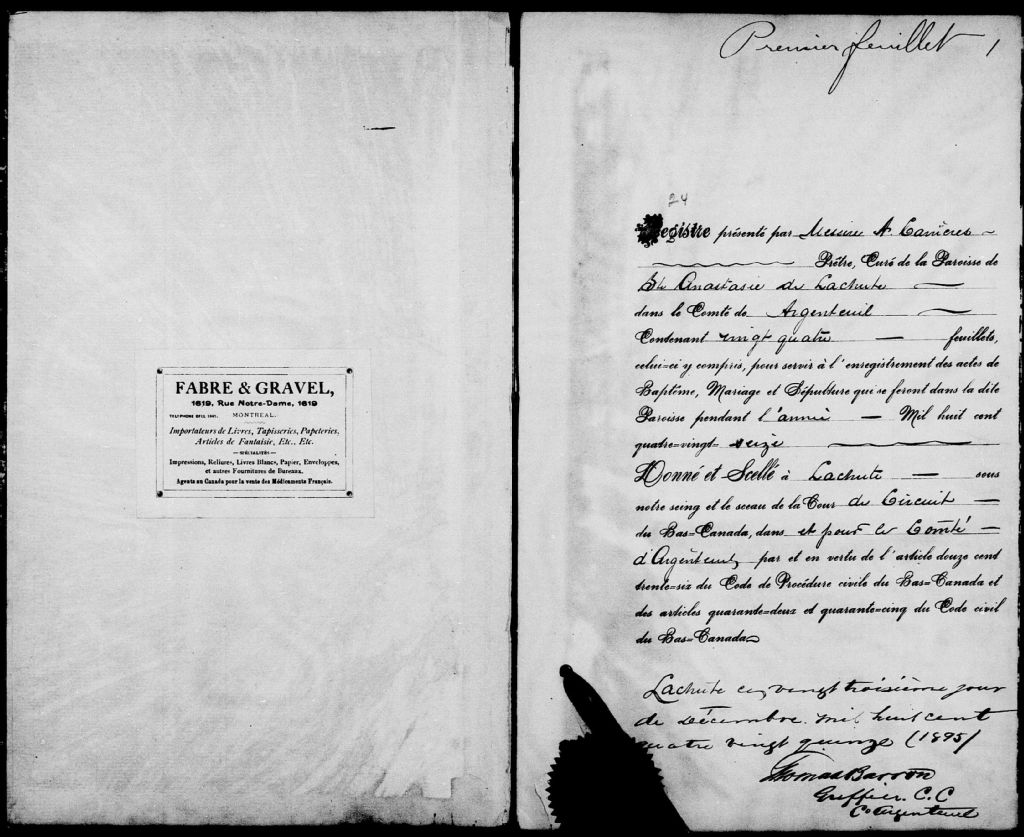 FABRE & GRAVEL,
1619, Rue Notre-Dame, 1619
MONTREAL.
Importateurs de Livres, Tapisseries, Papeteries,
Articles de Fantaisie, Etc., Etc.
— SPÉCIALITÉS —
Impressions, Reliures, Livres Blancs, Papier, Enveloppes,
et autres Fournitures de Bureaux.
Agents au Canada pour la vente des Médicaments Français.
Premier feuillet 1
24
Registre présenté par Messire A. Carrières
Prêtre, Curé de la Paroisse de
Ste Anastasie de Lachute
dans le Comté de Argenteuil
Contenant vingt quatre feuillets,
celui-ci y compris, pour servir à l'enregistrement des actes de
Baptême, Mariage et Sépulture qui se feront dans la dite
Paroisse pendant l'année Mil huit cent
quatre-vingt-seize
Donné et Scellé à Lachute sous
notre seing et le sceau de la Cour de Circuit
du Bas-Canada, dans et pour le Comté
d'Argenteuil par et en vertu de l'article douze cent
trente-six du Code de Procédure civile du Bas-Canada et
des articles quarante-deux et quarante-cinq du Code civil
du Bas-Canada
Lachute ce vingt troisième jour
de Décembre mil huit cent
quatre vingt quinze (1895)
Thomas Barron
Greffier. C.C
Co Argenteuil